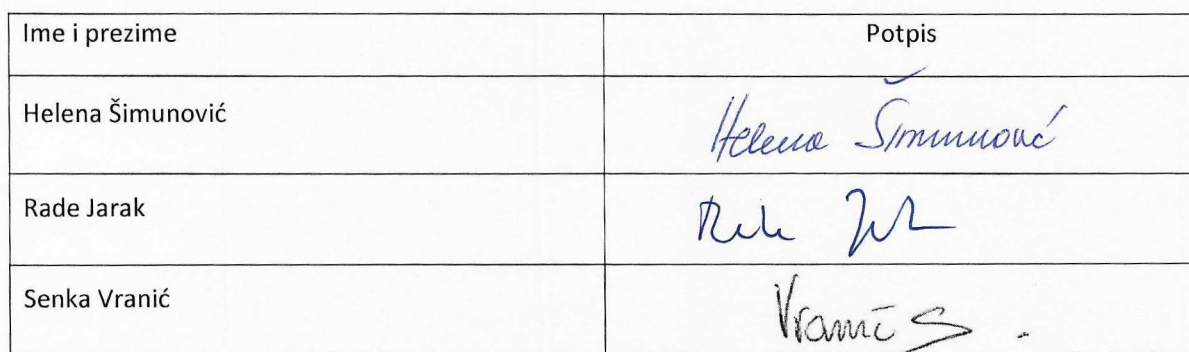 Ime i prezime Potpis
Helena Šimunović Helena Šimunović
Rade Jarak
Senka Vranić Vranić S.